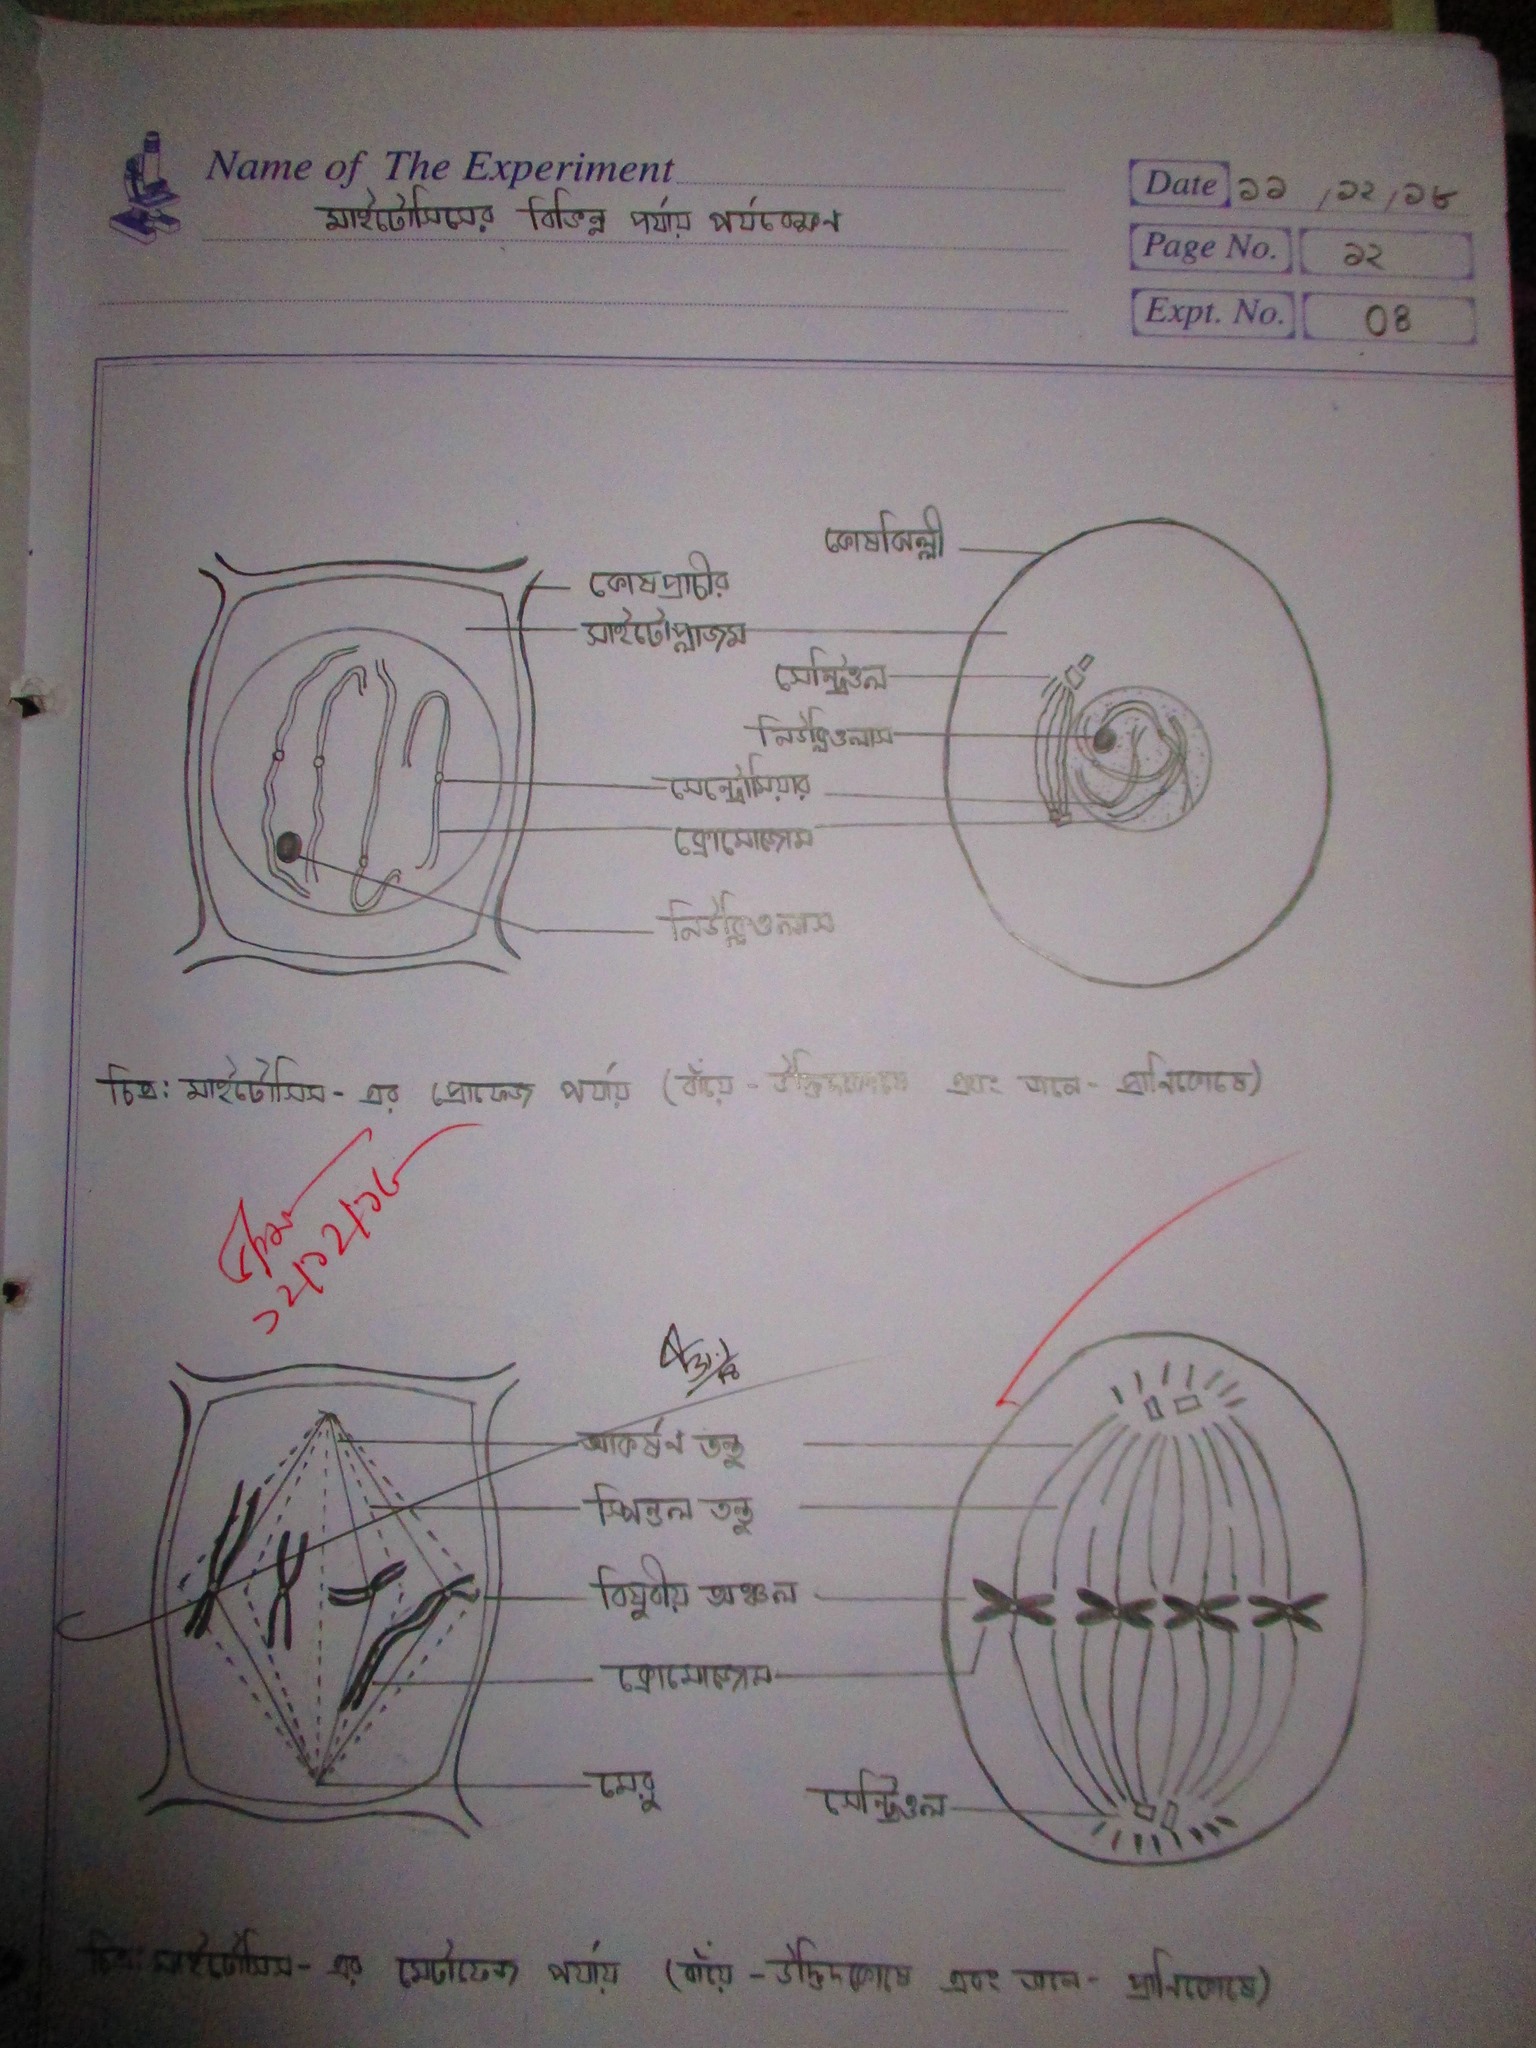 Name of The Experiment
মাইটোসিসের বিভিন্ন পর্যায় পর্যবেক্ষণ
Date ১১ /১২/১৮
Page No. ১২
Expt. No. 08
কোষঝিল্লী
কোষপ্রাচীর
সাইটোপ্লাজম
সেন্ট্রিওল
নিউক্লিওলাস
সেন্ট্রোমিয়ার
ক্রোমোজোম
নিউক্লিওলাস
চিত্র: মাইটোসিস- এর প্রোফেজ পর্যায় (বাঁয়ে - উদ্ভিদকোষে এবং ডানে- প্রাণিকোষে)
আকর্ষণ তন্তু
স্পিন্ডল তন্তু
বিষুবীয় অঞ্চল
ক্রোমোজোম
মেরু
সেন্ট্রিওল
চিত্র: মাইটোসিস- এর মেটাফেজ পর্যায় (বাঁয়ে - উদ্ভিদকোষে এবং ডানে- প্রাণিকোষে)